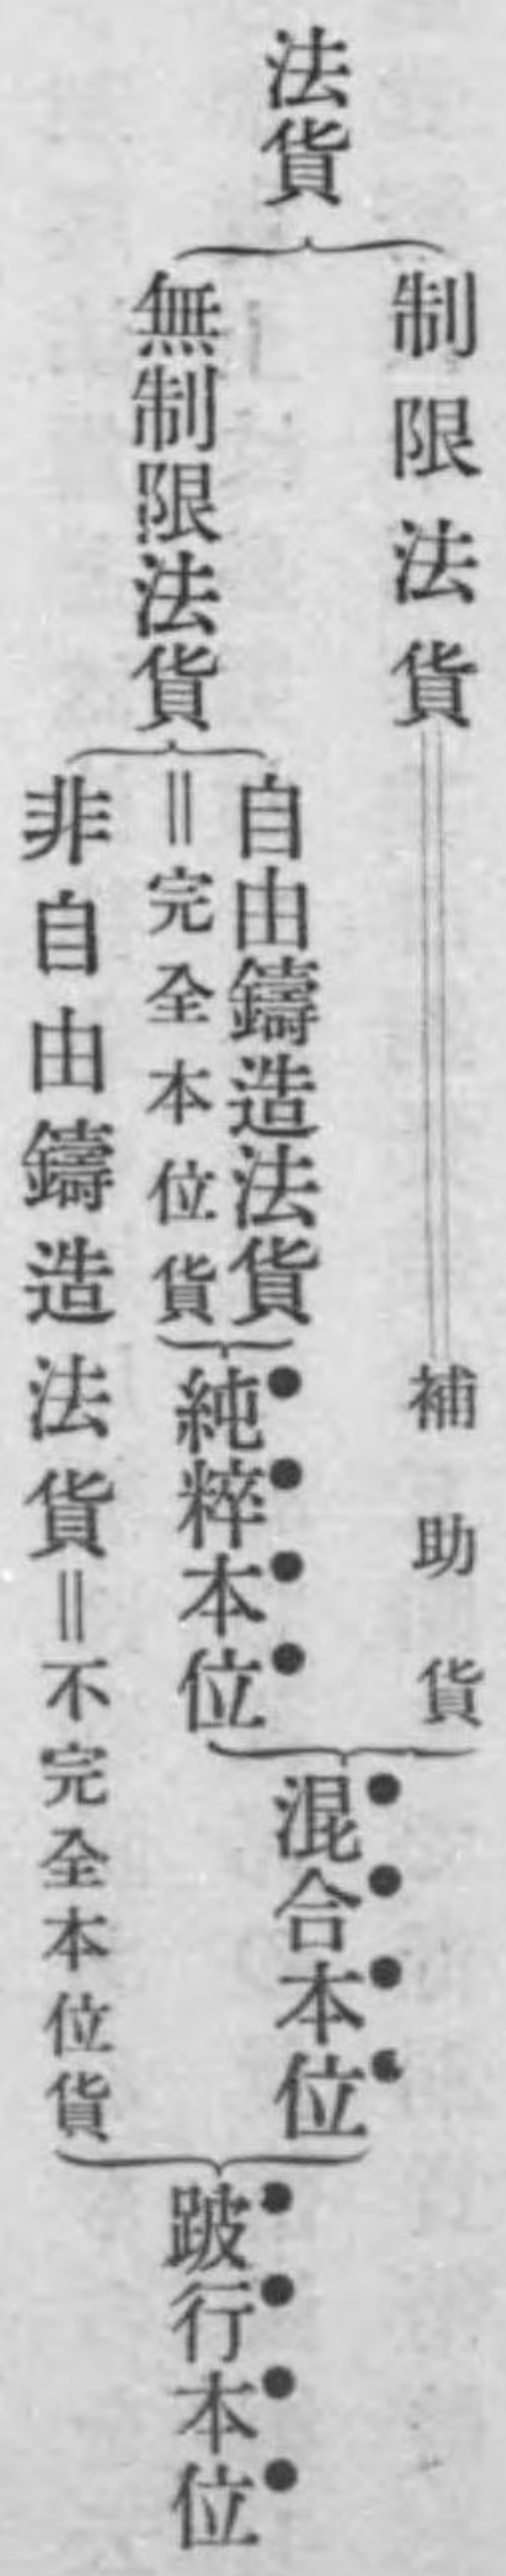 法貨
制限法貨＝補助貨
無制限法貨
自由鑄造法貨
＝完全本位貨
非自由鑄造法貨＝不完全本位貨
純粹本位
混合本位
跛行本位